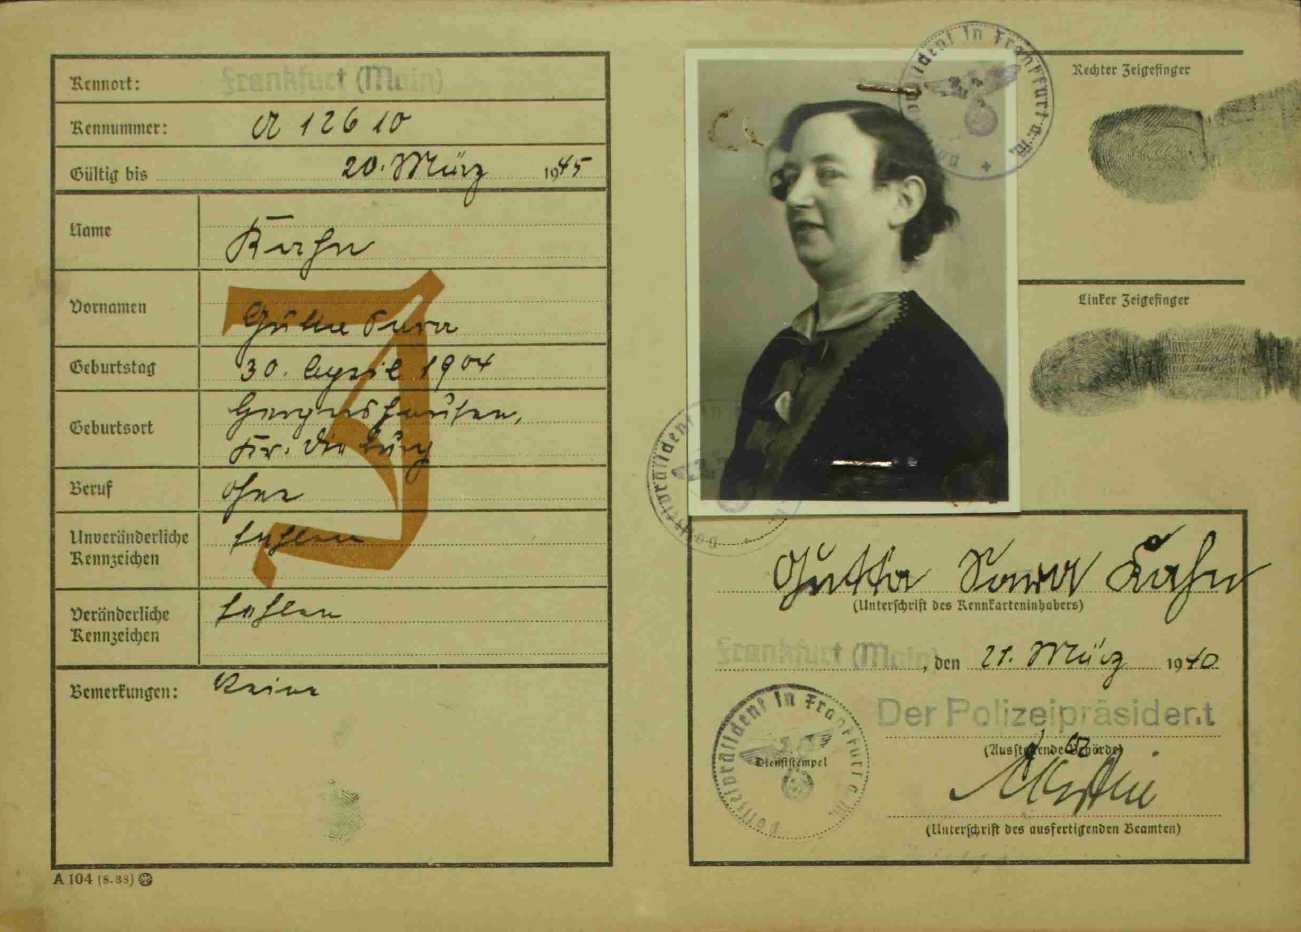 Kennort: Frankfurt (Main)
Kennummer: A 12610
Gültig bis 20. März 1945
Name Kahn
Vornamen Gutta Sara
Geburtstag 30. April 1904
Geburtsort
Kr.
Beruf ohne
Unveränderliche Kennzeichen fehlen
Veränderliche Kennzeichen fehlen
Bemerkungen: Keine
J
A 104 (8.38)
Rechter Zeigefinger
Linker Zeigefinger
Polizeipräsident in Frankfurt a.M.
Polizeipräsident in
Gutta Sara Kahn
(Unterschrift des Kennkarteninhabers)
Frankfurt (Main), den 21. März 1940
Der Polizeipräsident
(Ausstellende Behörde)
Polizeipräsident in Frankfurt a.M.
Dienststempel
(Unterschrift des ausfertigenden Beamten)